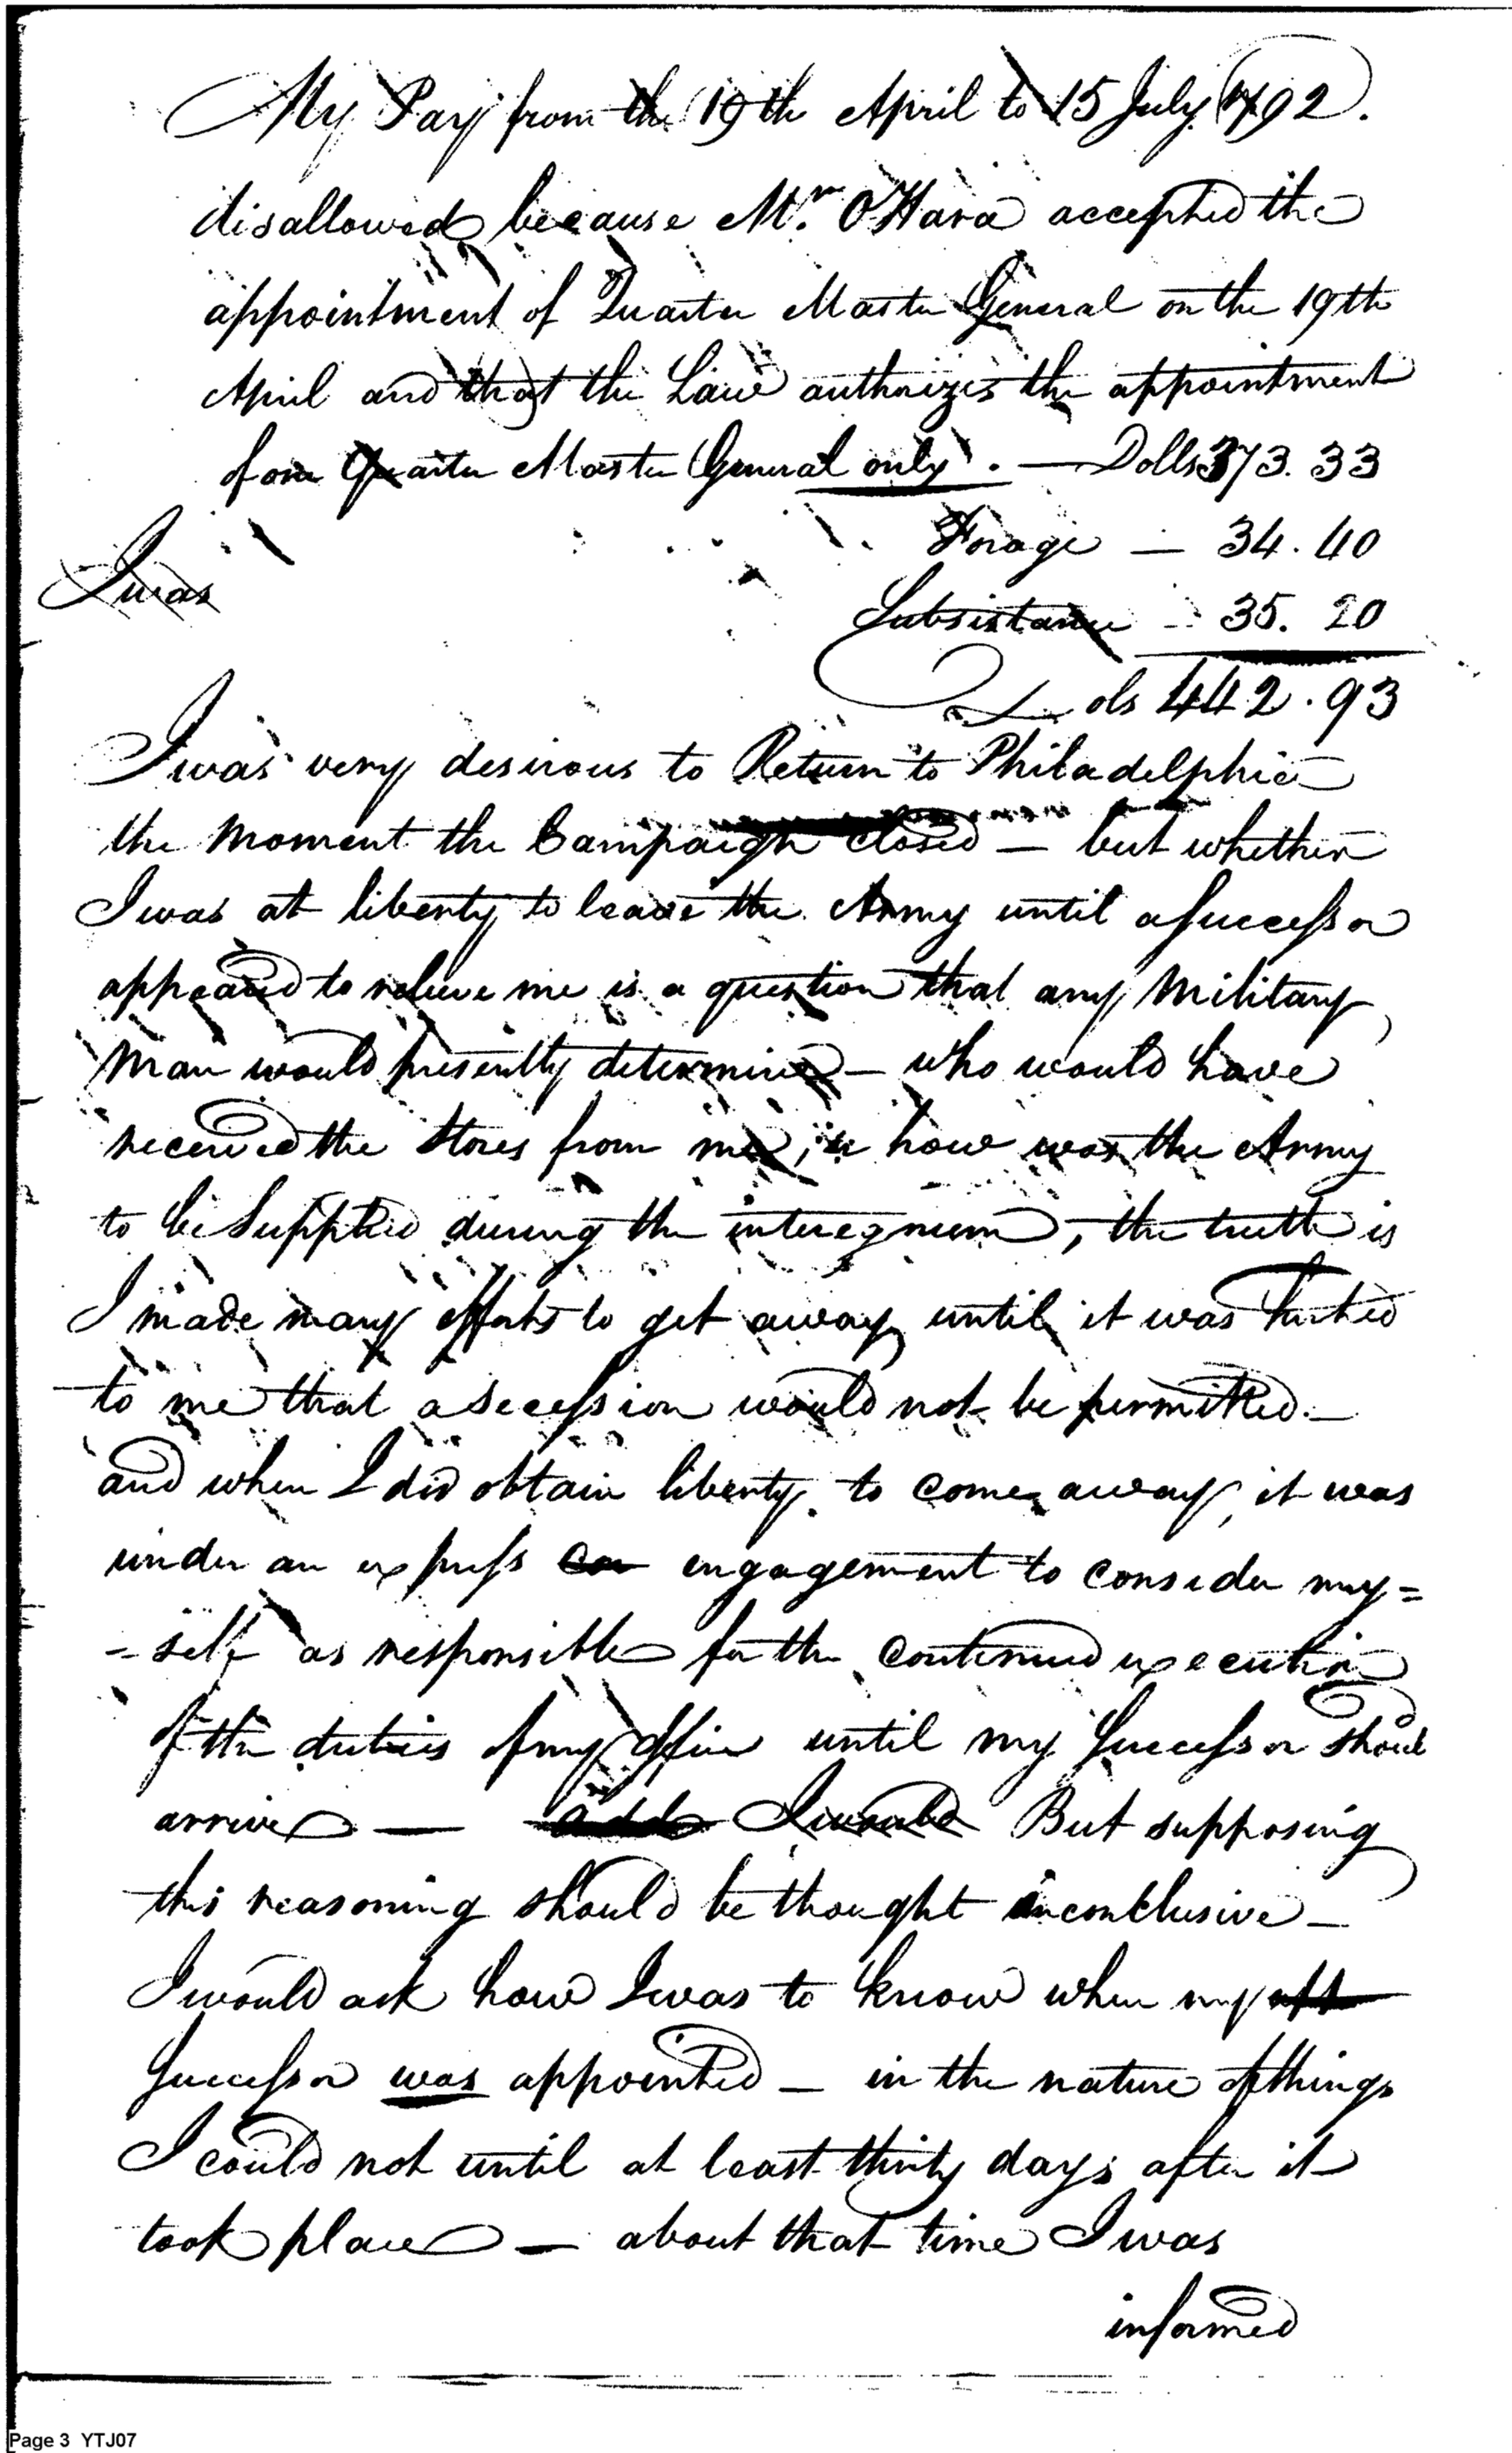 My Pay from the 19th April to 15 July 1792.
disallowed because Mr. O'Hara accepted the
appointment of Quarter Master General on the 19th
April and that the Law authorizes the appointment
of one Quarter Master General only. — Dolls 373.33
Forage — 34.40
I was
Subsistance - 35.20
Dols 442.93
I was very desirous to Return to Philadelphia
the moment the Campaign closed — but whether
I was at liberty to leave the Army until a successor
appeared to relieve me is a question that any military
man would presently determine — who would have
received the Stores from me, & how was the Army
to be Supplied during the interegnum, the truth is
I made many efforts to get away until it was hinted
to me that a secession would not be permitted. —
and when I did obtain liberty to come away, it was
under an express co engagement to consider my=
=self as responsible for the continued execution
of the duties of my office until my successor should
arrive — add I would But supposing
this reasoning should be thought inconclusive —
I would ask how I was to know when my app
successor was appointed — in the nature of things
I could not until at least thirty days after it
took place — about that time I was
informed
Page 3 YTJ07